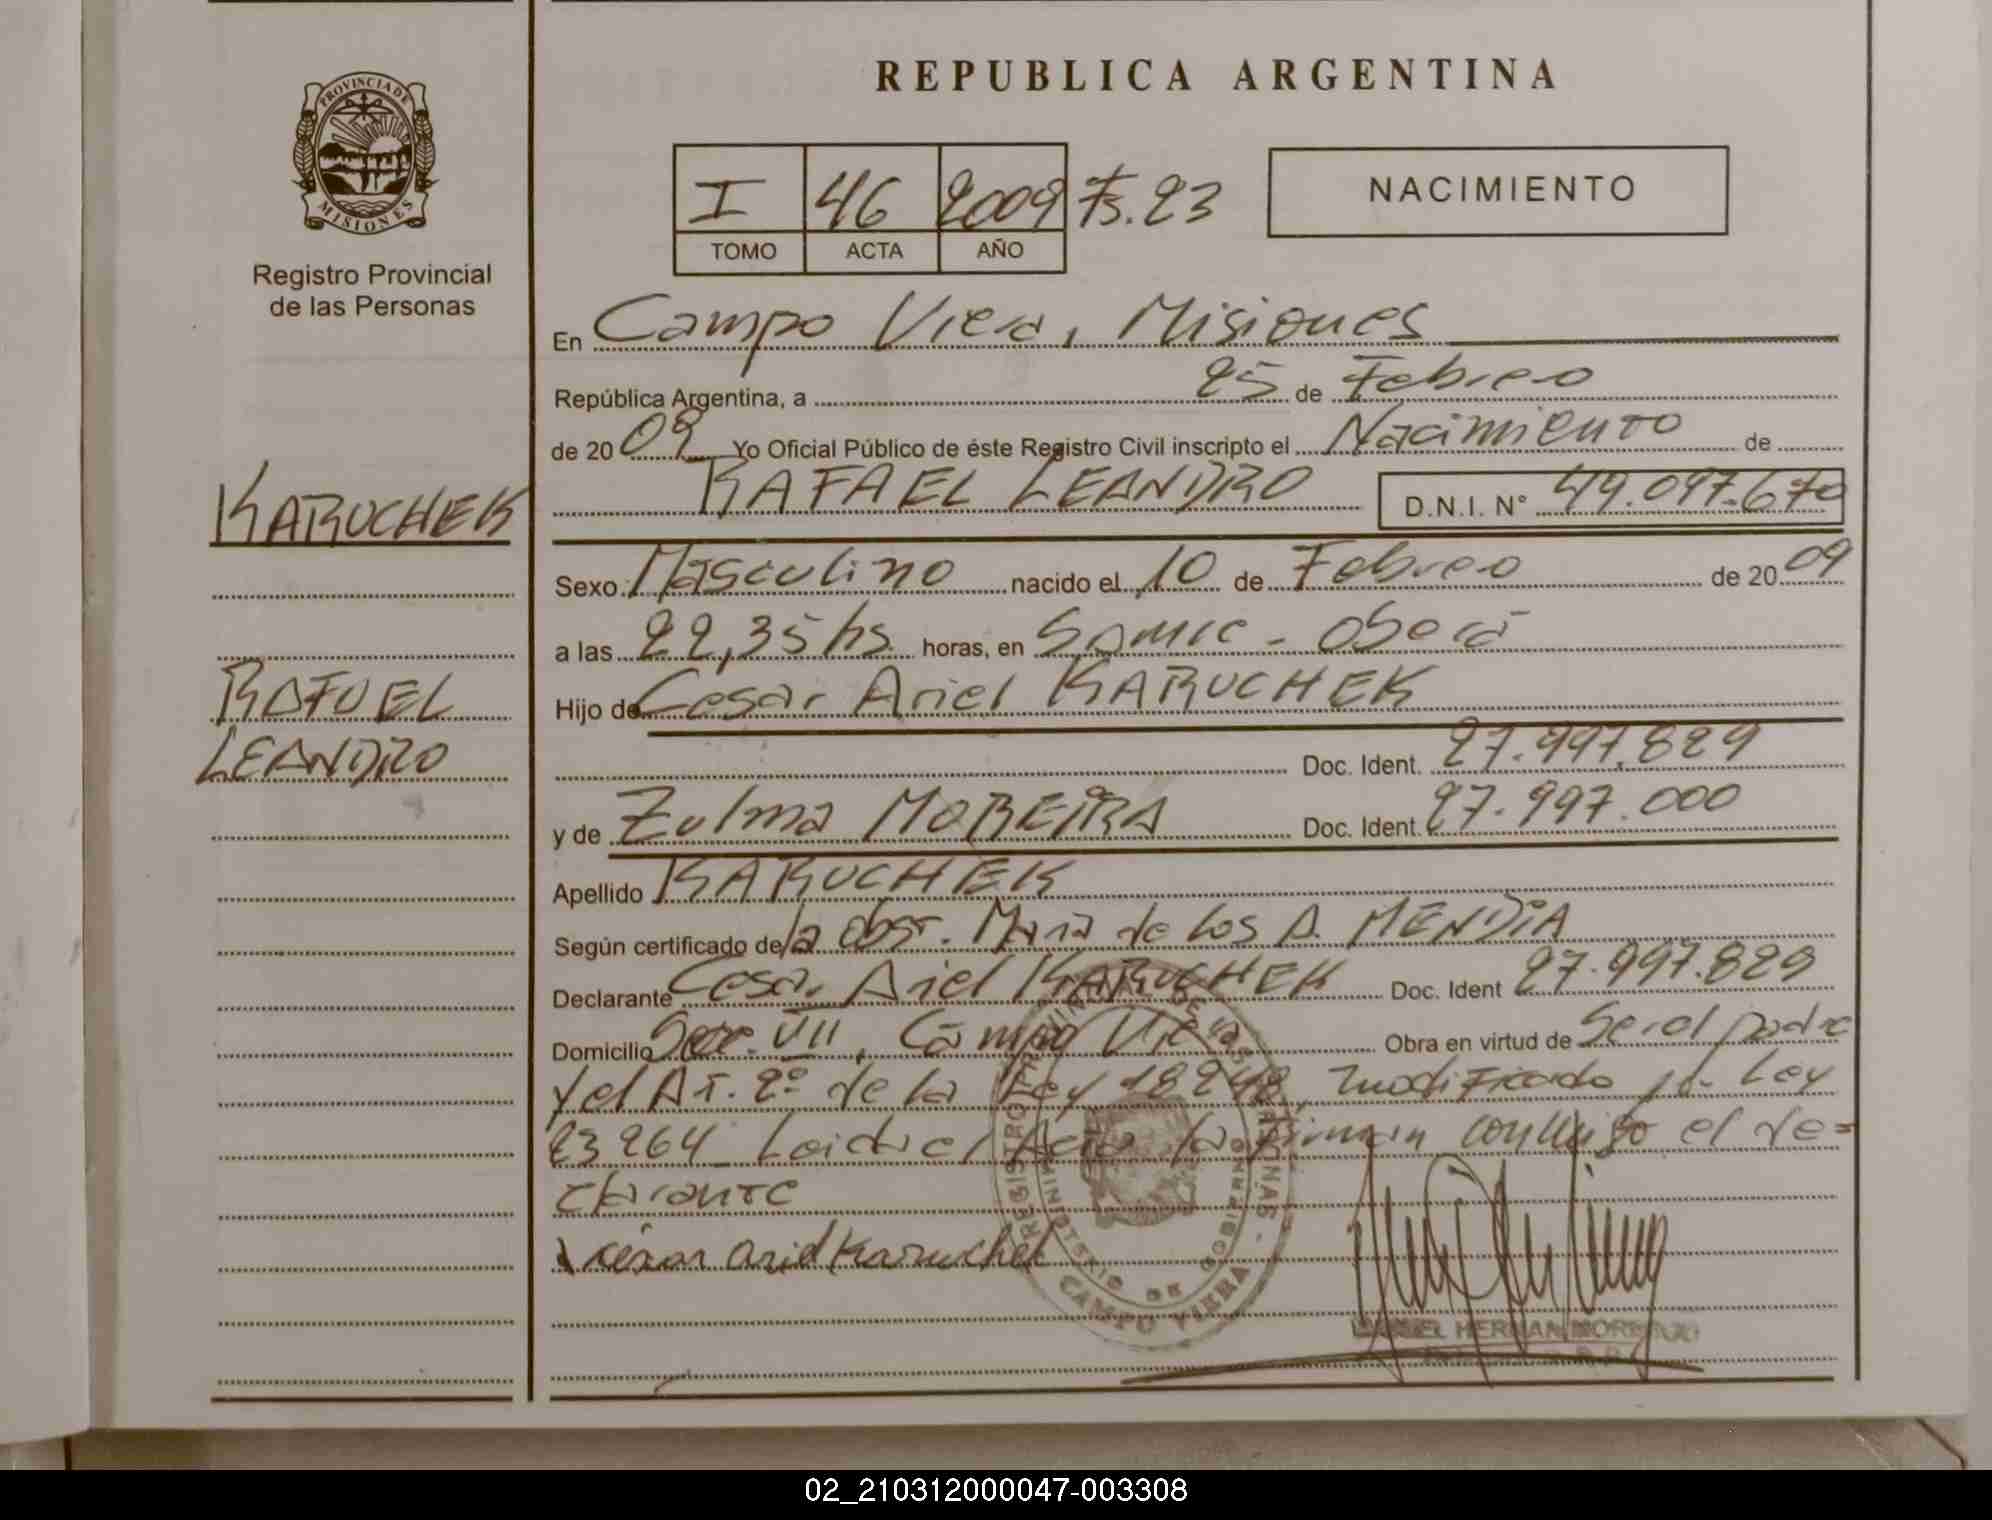 REPUBLICA ARGENTINA
PROVINCIA DE MISIONES
Registro Provincial
de las Personas
I 46 2009 Fs. 23
TOMO ACTA AÑO
NACIMIENTO
En Campo Viera, Misiones
República Argentina, a 25 de Febrero
de 2009 Yo Oficial Público de éste Registro Civil inscripto el Nacimiento de
RAFAEL LEANDRO D.N.I. N° 49.097.670
KARUCHEK
Sexo: Masculino nacido el 10 de Febrero de 2009
a las 22,35 hs horas, en Samic - Oberá
RAFAEL
LEANDRO
Hijo de Cesar Ariel KARUCHEK
Doc. Ident. 27.997.829
y de Zulma MOREIRA Doc. Ident. 27.997.000
Apellido KARUCHEK
Según certificado de la obst. Maria de los A. MENDIA
Declarante Cesar Ariel KARUCHEK Doc. Ident 27.997.829
Domicilio Secc. VII, Campo Viera Obra en virtud de Ser el padre
y el Art. 2° de la Ley 18248, modificado p. Ley
23264 Leida el Acta la firman conmigo el de=
clarante
cesar ariel Karuchek
REGISTRO PROVINCIAL DE LAS PERSONAS
MINISTERIO DE GOBIERNO
CAMPO VIERA
HERNAN
02_210312000047-003308